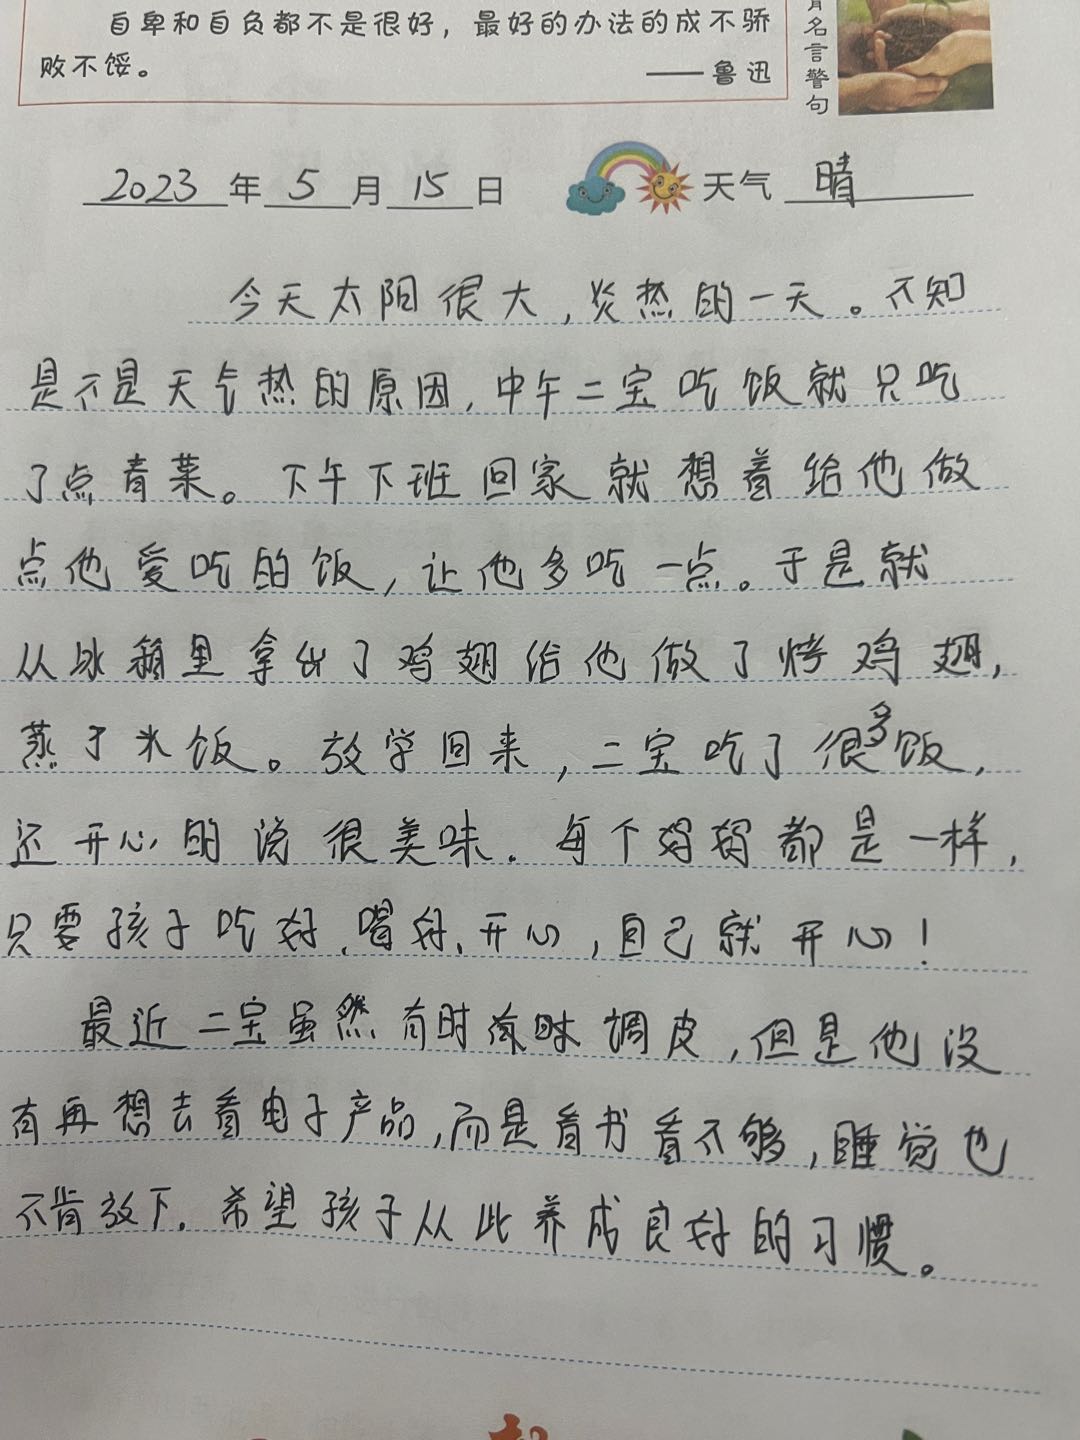 自卑和自负都不是很好，最好的办法的成不骄
败不馁。
——鲁迅
名言警句
2023年5月15日 天气 晴
今天太阳很大，炎热的一天。不知
是不是天气热的原因，中午二宝吃饭就只吃
了点青菜。下午下班回家就想着给他做
点他爱吃的饭，让他多吃一点。于是就
从冰箱里拿出了鸡翅给他做了烤鸡翅，
蒸了米饭。放学回来，二宝吃了很多饭，
还开心的说很美味。每个妈妈都是一样，
只要孩子吃好、喝好、开心，自己就开心！
最近二宝虽然有时调皮，但是他没
有再想去看电子产品，而是看书看不够，睡觉也
不肯放下。希望孩子从此养成良好的习惯。